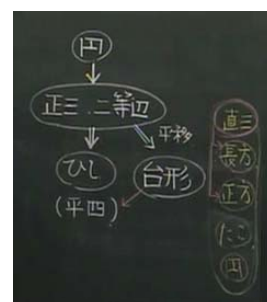 円
正三 二等辺
平移
ひし
台形
(平四)
直三
長方
正方
たこ
円